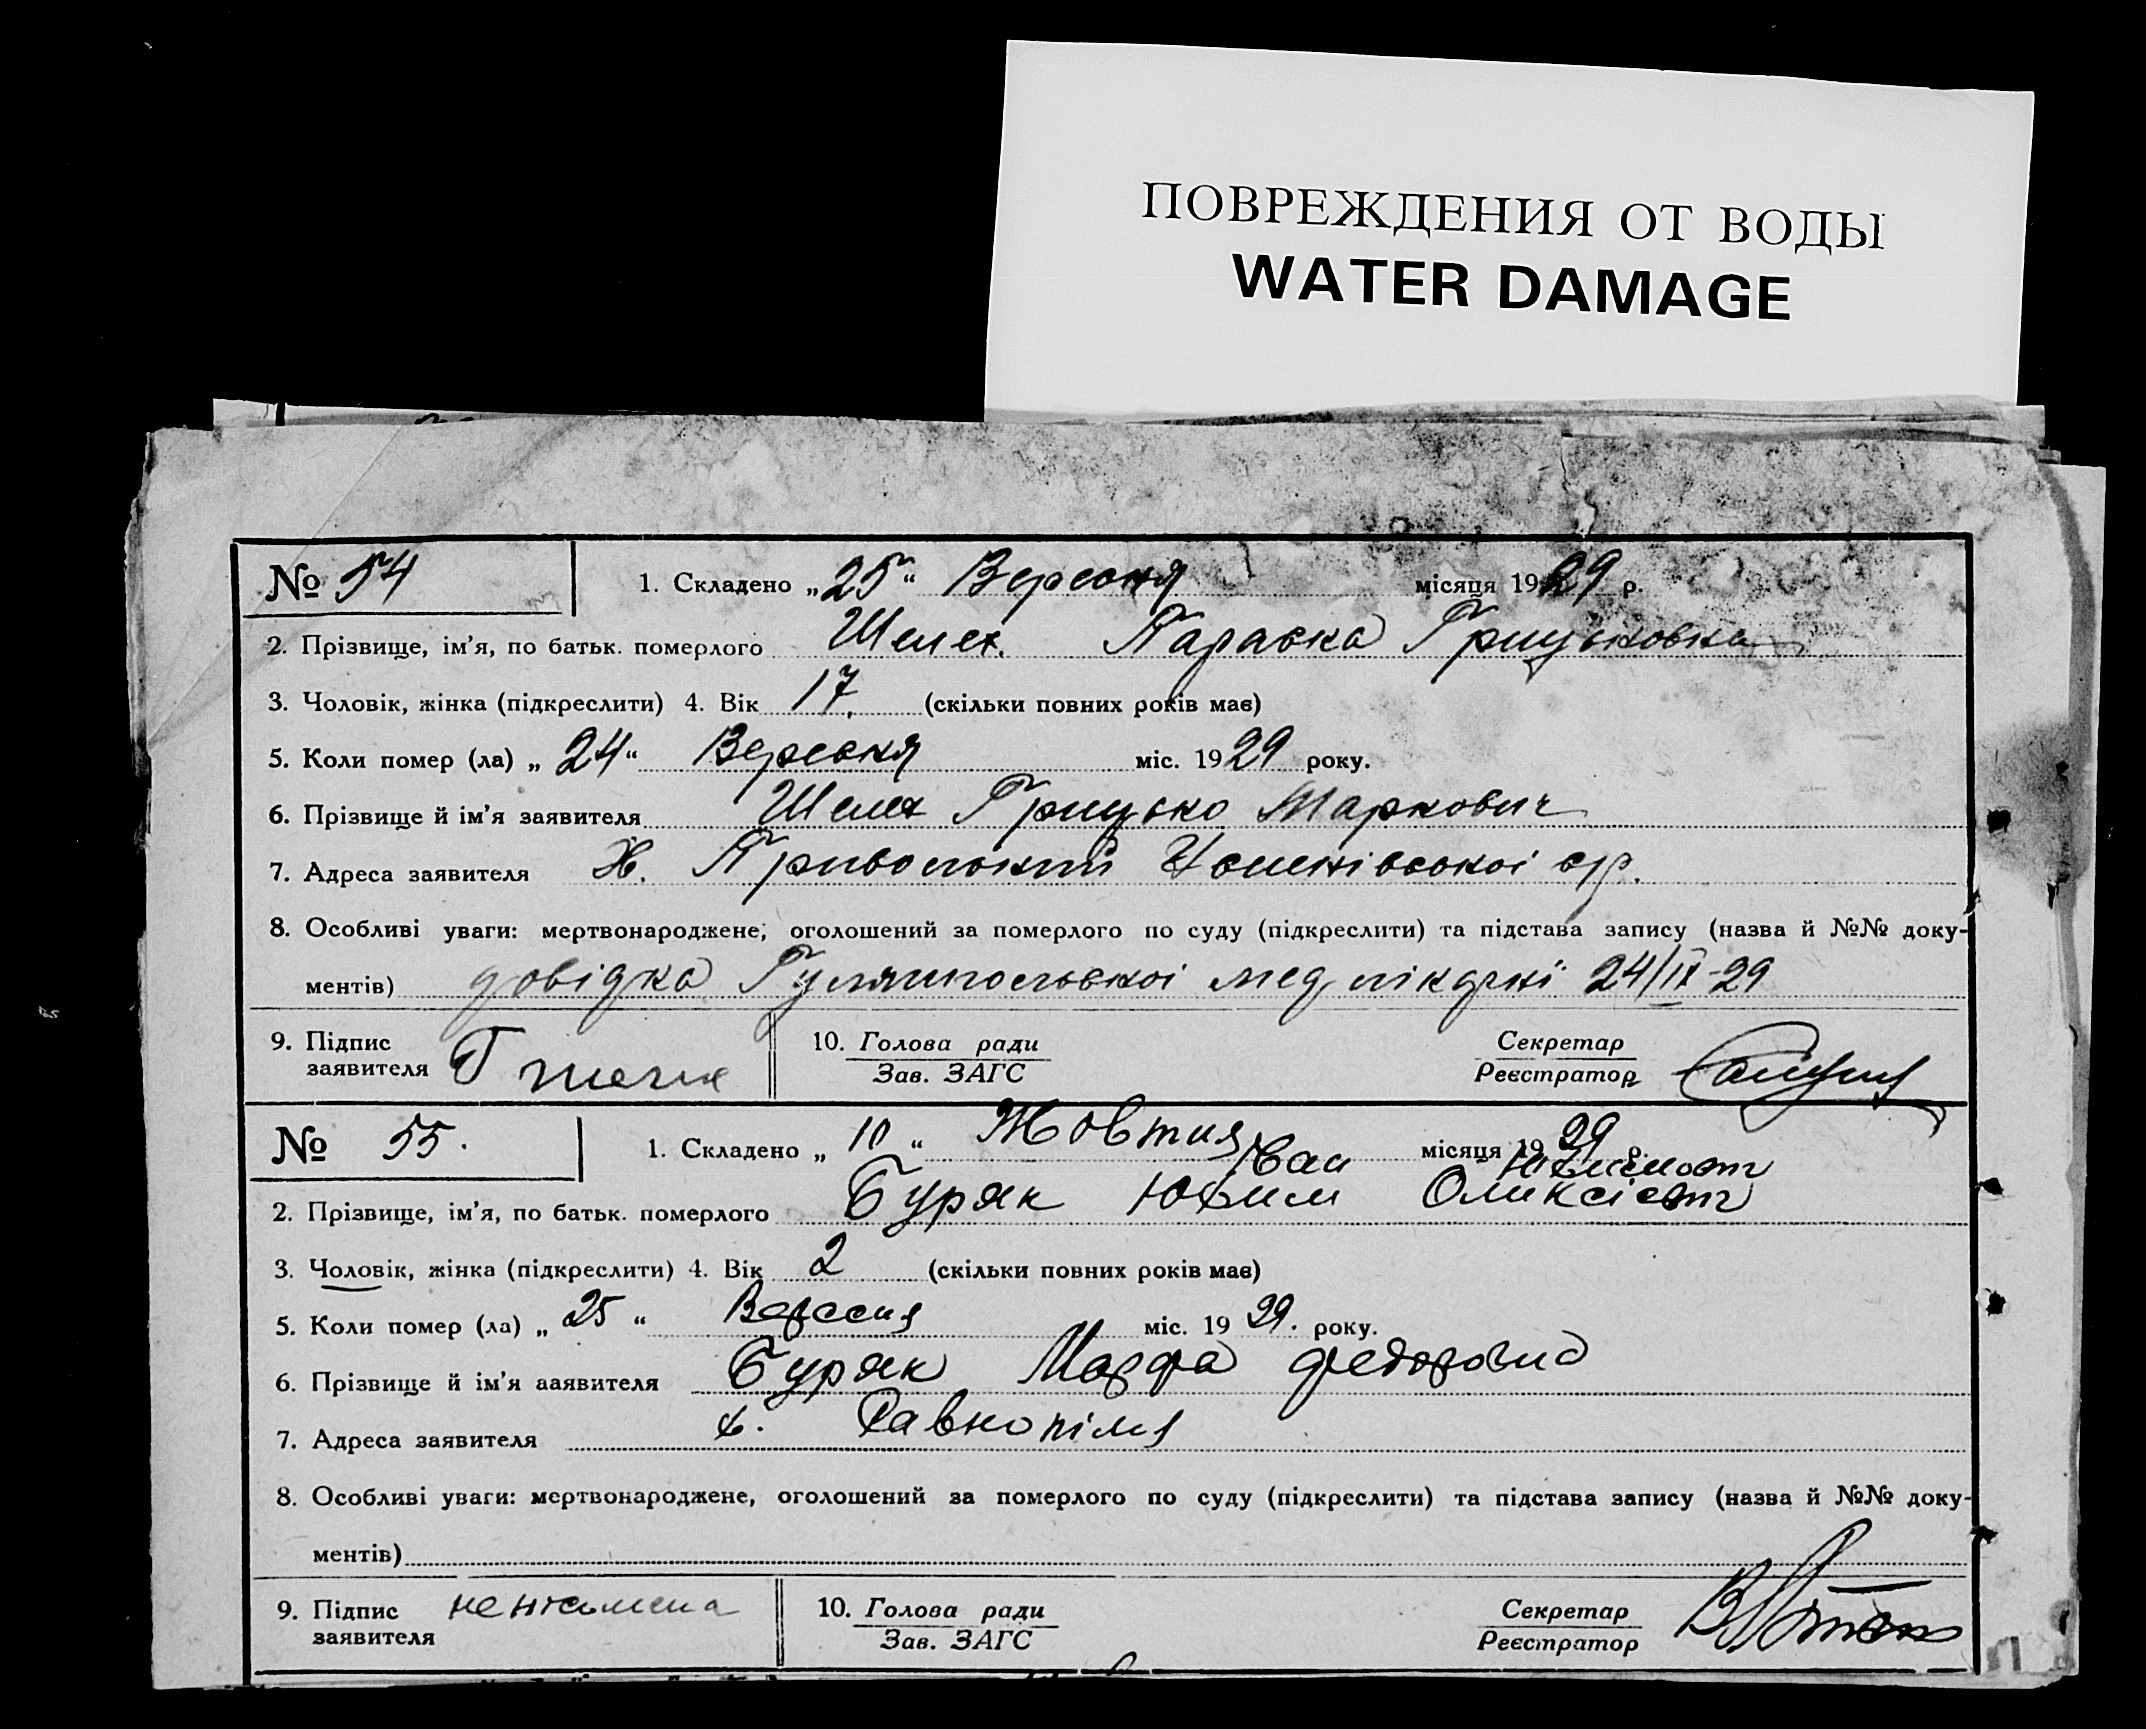 ПОВРЕЖДЕНИЯ ОТ ВОДЫ
WATER DAMAGE
№ 54 1. Складено „25“ Вересня місяця 1929 р.
2. Прізвище, ім'я, по батьк. померлого Шелех. Параска Грицьковна
3. Чоловік, жінка (підкреслити) 4. Вік 17. (скільки повних років має)
5. Коли помер (ла) „24“ Вересня міс. 1929 року.
6. Прізвище й ім'я заявителя Шелех Грицько Маркович
7. Адреса заявителя Х. Привольний Успенівської с/р.
8. Особливі уваги: мертвонароджене, оголошений за померлого по суду (підкреслити) та підстава запису (назва й №№ доку-
ментів) довідка Гуляйпольської мед лікарні 24/IX-29
9. Підпис заявителя Г шелех 10. Голова ради Зав. ЗАГС Секретар Реєстратор
№ 55. 1. Складено „10“ Жовтня місяця 1929 р.
Іван Юхимович
2. Прізвище, ім'я, по батьк. померлого Буряк Юхим Олексієвич
3. Чоловік, жінка (підкреслити) 4. Вік 2 (скільки повних років має)
5. Коли помер (ла) „25“ Вересня міс. 1929. року.
6. Прізвище й ім'я ааявителя Буряк Марфа Федоровна
7. Адреса заявителя с. Равнопілля
8. Особливі уваги: мертвонароджене, оголошений за померлого по суду (підкреслити) та підстава запису (назва й №№ доку-
ментів)
9. Підпис заявителя неписьмена 10. Голова ради Зав. ЗАГС Секретар Реєстратор